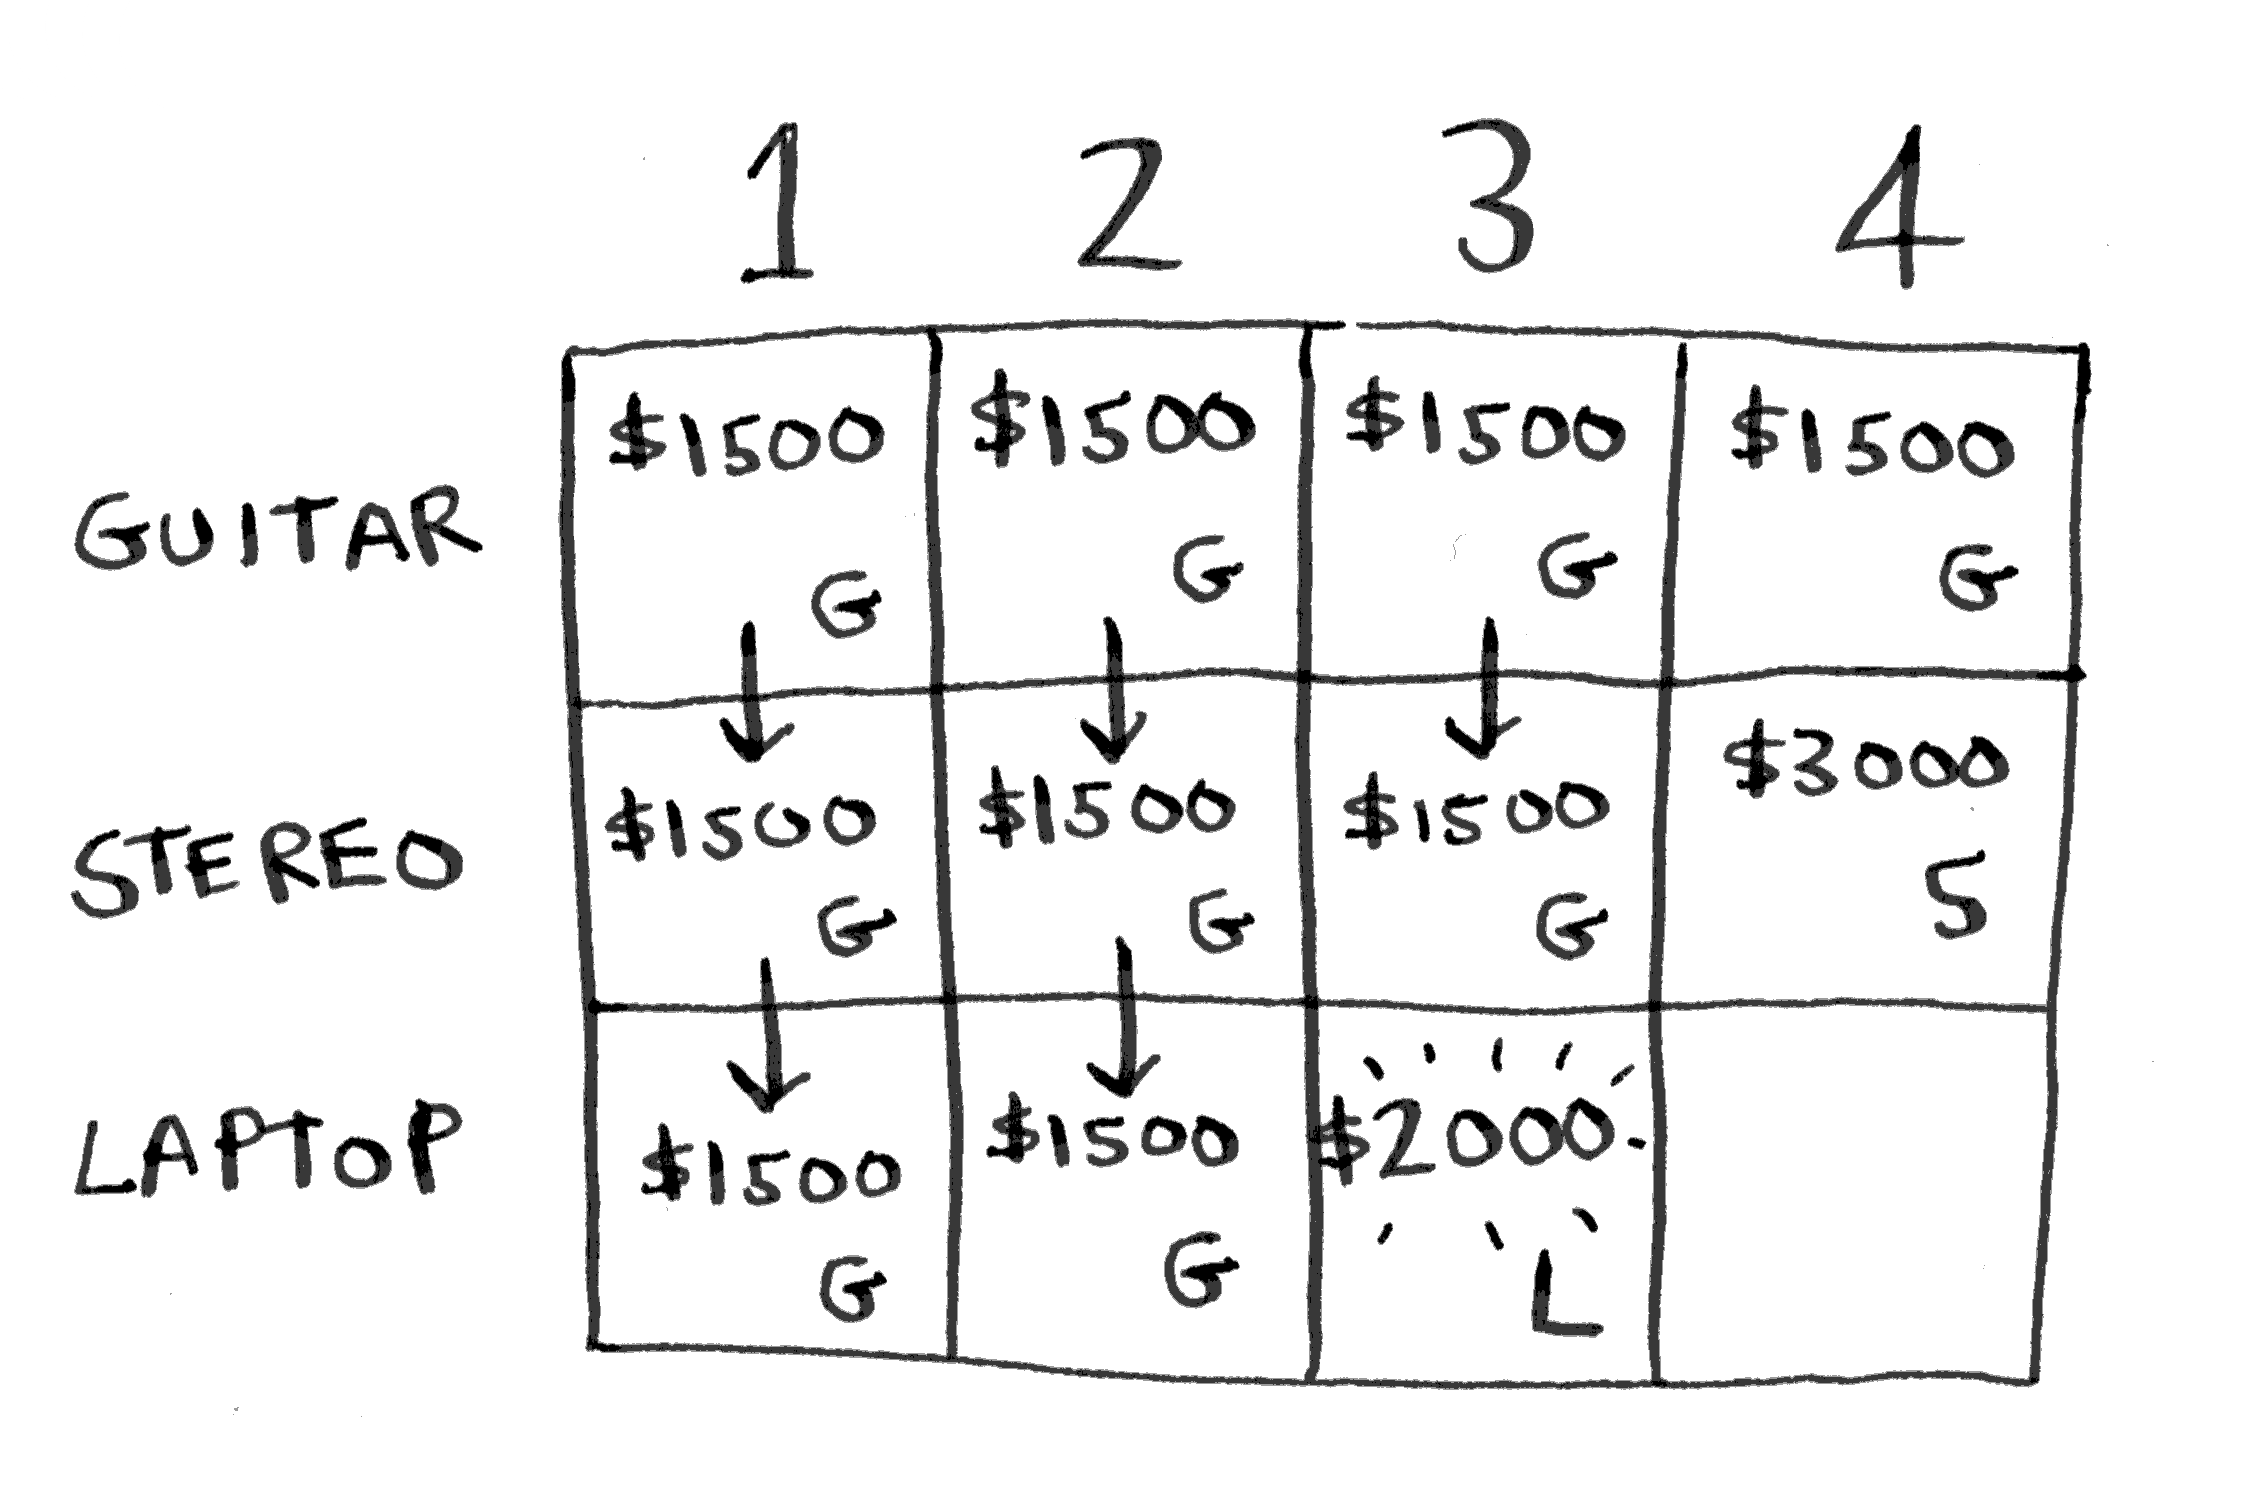 1 2 3 4
GUITAR $1500 G $1500 G $1500 G $1500 G
STEREO $1500 G $1500 G $1500 G $3000 S
LAPTOP $1500 G $1500 G $2000 L